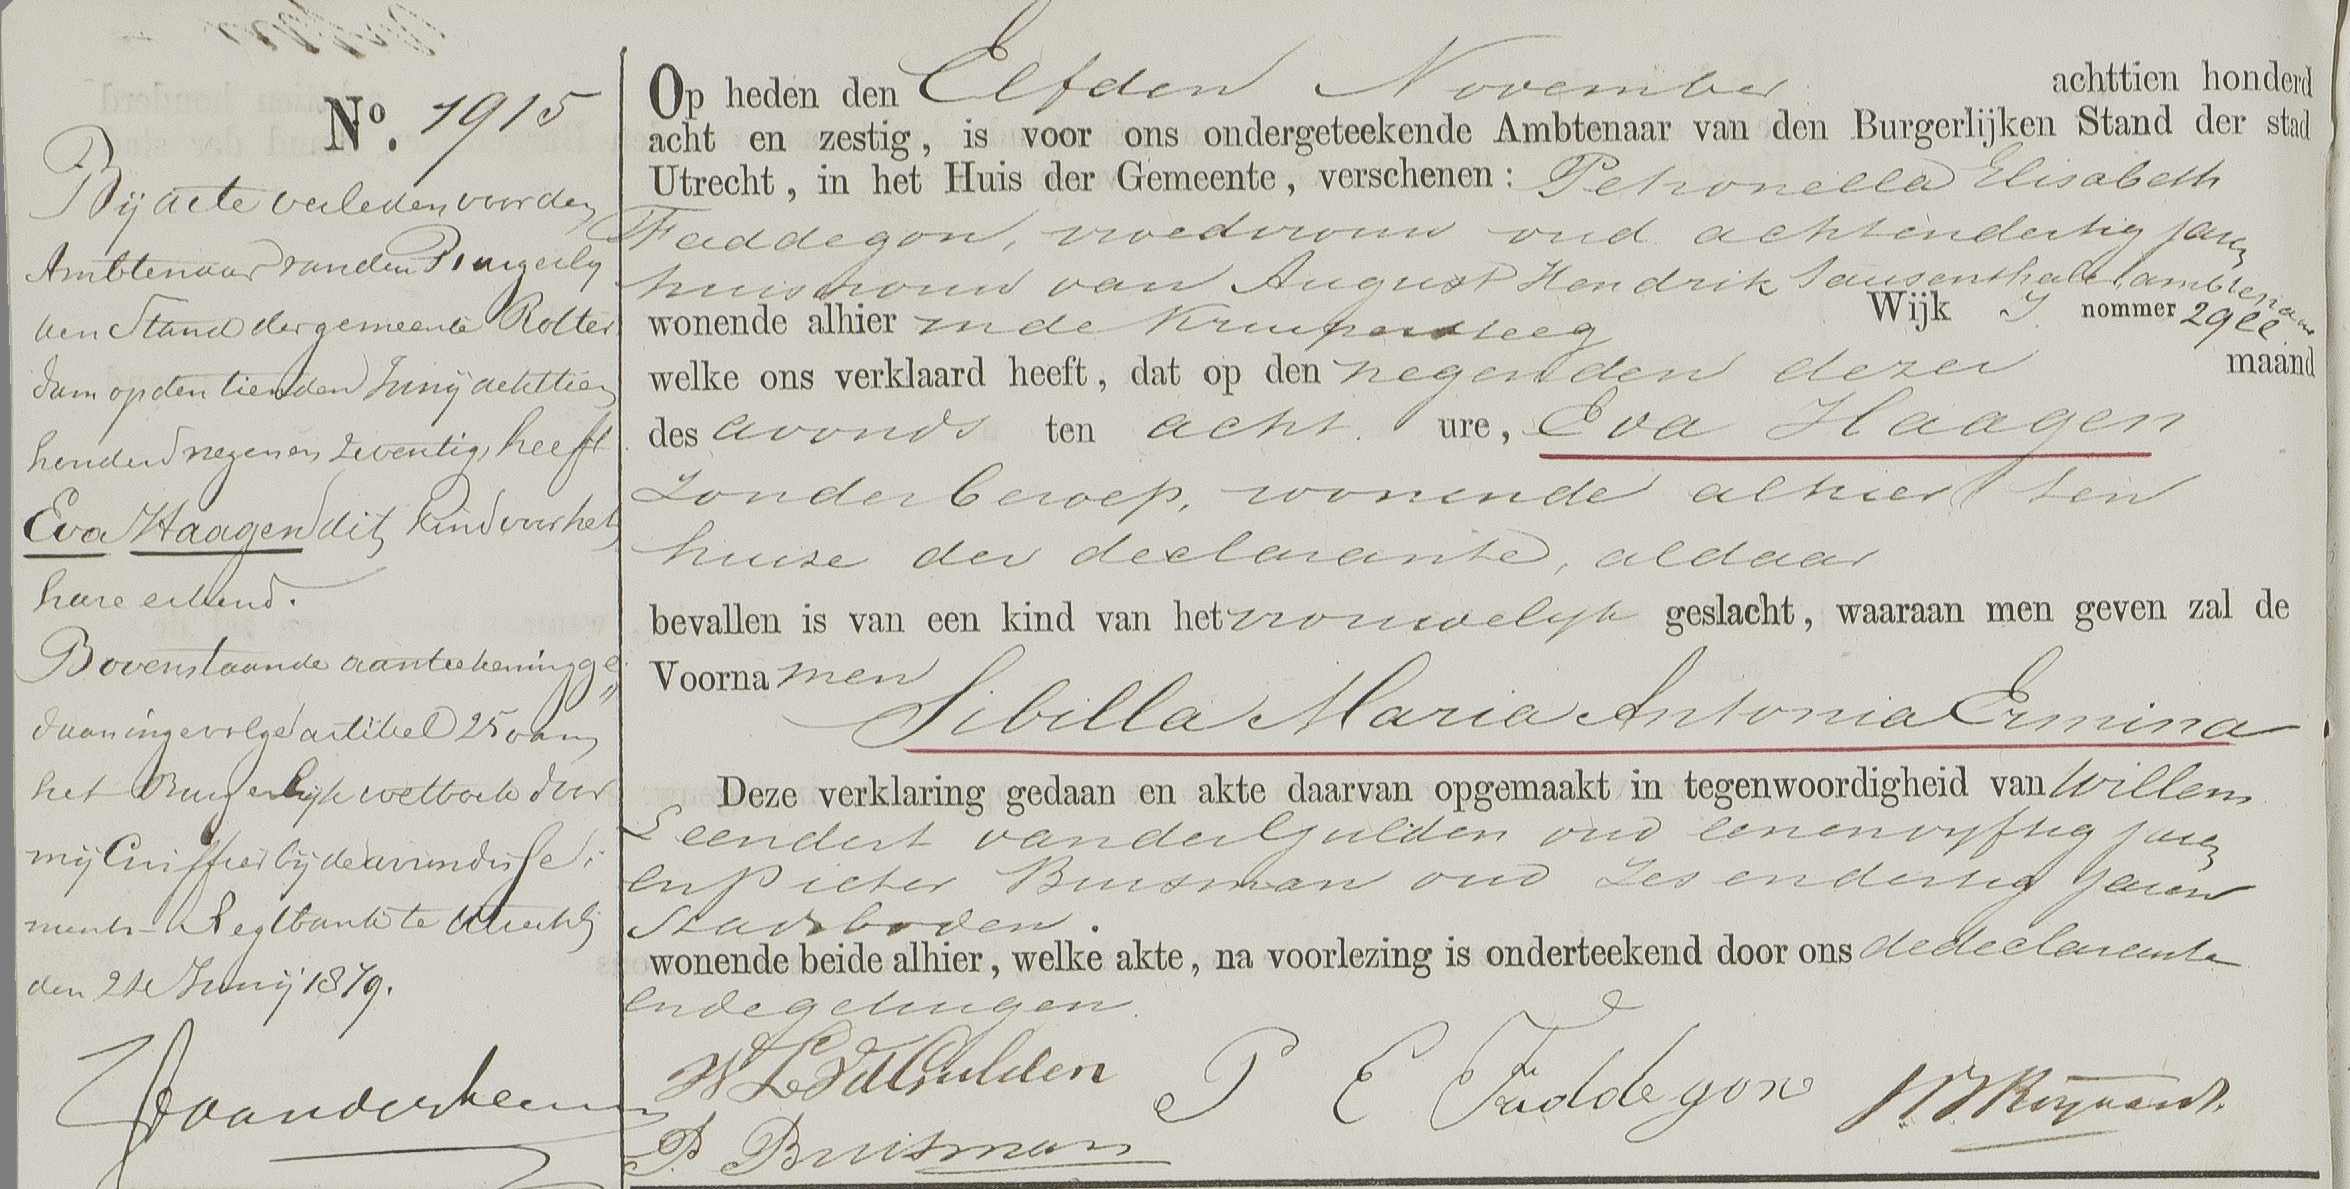 No. 1915
Bij acte verleden voor den
Ambtenaar van den Burgerlij
ken Stand der gemeente Rotter
dam op den tienden Junij achttien
honderd negen en zeventig, heeft
Eva Haagen dit kind voor het
hare erkend.
Bovenstaande aanteekening ge„
daan ingevolge artikel 25 van
het Burgerlijk wetboek door
mij Griffier bij de arrondisse„
ments-Regtbank te Utrecht
den 21e Junij 1879.
Op heden den Elfden November achttien honderd
acht en zestig, is voor ons ondergeteekende Ambtenaar van den Burgerlijken Stand der stad
Utrecht, in het Huis der Gemeente, verschenen: Petronella Elisabeth
Faddegon, vroedvrouw oud achtendertig jaren
huisvrouw van August Hendrik Sausenthaler ambtenaar
wonende alhier in de Kruipersteeg Wijk I nommer 29
welke ons verklaard heeft, dat op den negenden dezer maand
des avonds ten acht ure, Eva Haagen
zonder beroep, wonende alhier ten
huise der declarante, aldaar
bevallen is van een kind van het vrouwelijk geslacht, waaraan men geven zal de
Voornamen
Sibilla Maria Antonia Ermina
Deze verklaring gedaan en akte daarvan opgemaakt in tegenwoordigheid van Willem
Leendert van der Gulden oud eenenvyftig jaren
en Pieter Buisman oud zesendertig jaren
Stadsboden.
wonende beide alhier, welke akte, na voorlezing is onderteekend door ons de declarante
en de getuigen.
W L vd Gulden P E Faddegon
P. Buisman